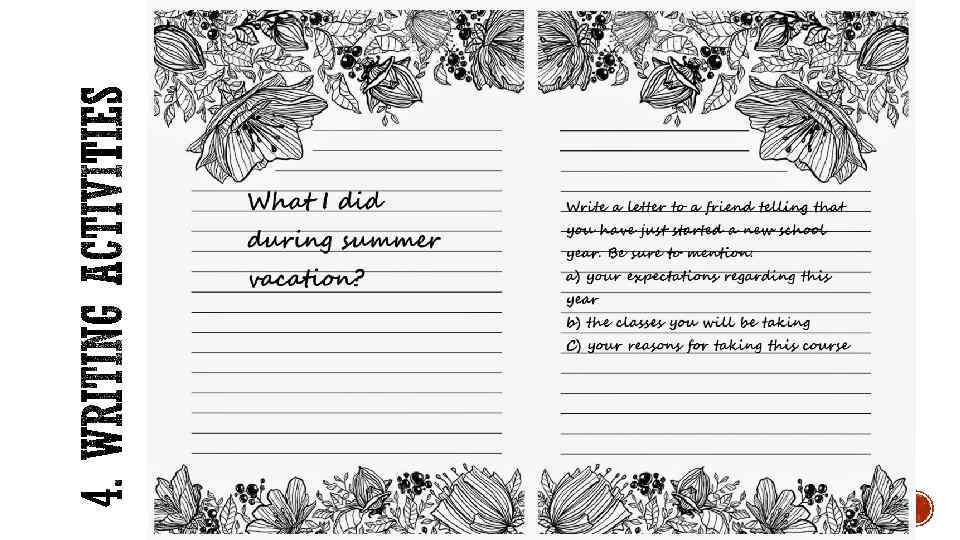 4. WRITING ACTIVITIES
What I did
during summer
vacation?
Write a letter to a friend telling that
you have just started a new school
year. Be sure to mention:
a) your expectations regarding this
year
b) the classes you will be taking
C) your reasons for taking this course